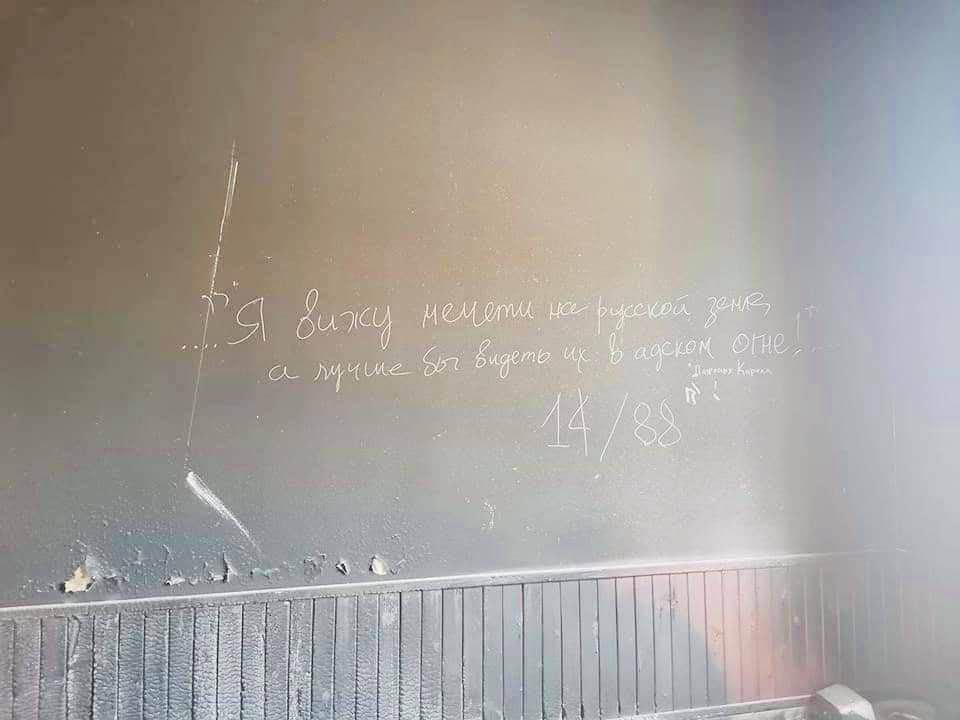 .... "Я вижу мечети на русской земле,
а лучше бы видеть их в адском огне!
Кирилл
14/88